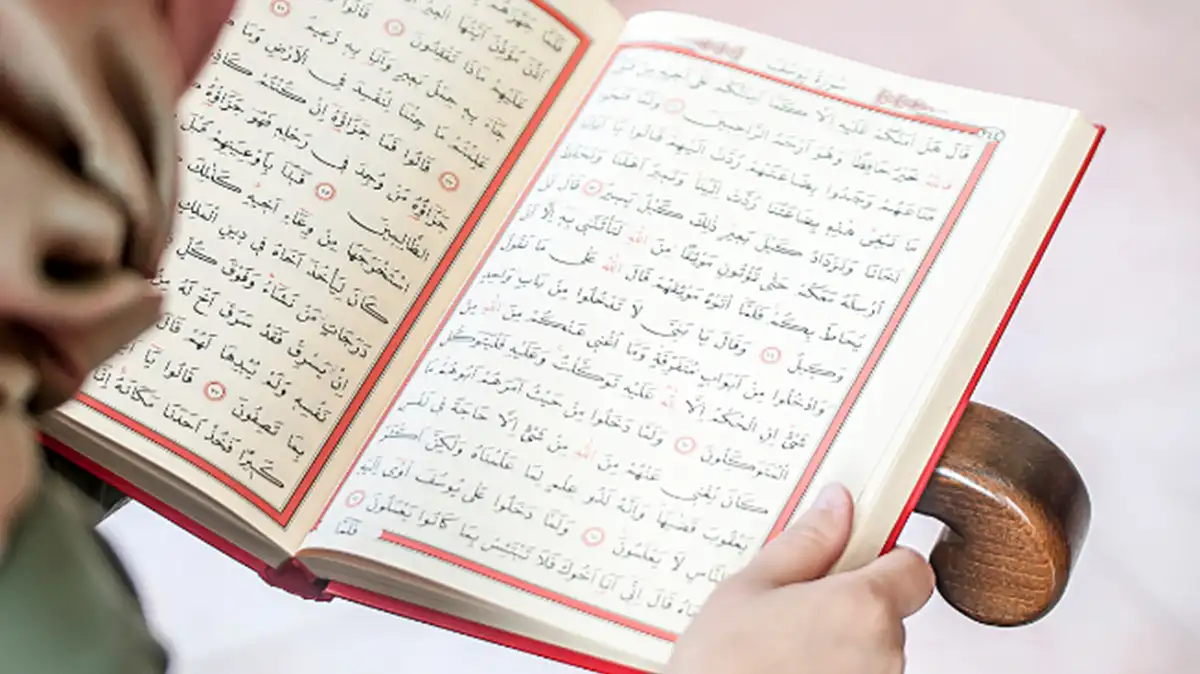 سُورَةُ يُوسُفَ
قَالَ هَلْ اٰمَنُكُمْ عَلَيْهِ اِلَّا كَمَٓا اَمِنْتُكُمْ عَلٰٓى اَخ۪يهِ مِنْ
فَاللّٰهُ خَيْرٌ حَافِظًا وَهُوَ اَرْحَمُ الرَّاحِم۪ينَ وَلَمَّا فَتَحُوا
مَتَاعَهُمْ وَجَدُوا بِضَاعَتَهُمْ رُدَّتْ اِلَيْهِمْ قَالُوا يَٓا اَبَانَا
مَا نَبْغ۪ي هٰذِه۪ بِضَاعَتُنَا رُدَّتْ اِلَيْنَا وَنَم۪يرُ اَهْلَنَا وَنَحْفَظُ
اَخَانَا وَنَزْدَادُ كَيْلَ بَع۪يرٍ ذٰلِكَ كَيْلٌ يَس۪يرٌ قَالَ لَنْ
اُرْسِلَهُ مَعَكُمْ حَتّٰى تُؤْتُونِ مَوْثِقًا مِنَ اللّٰهِ لَتَأْتُنَّن۪ي بِه۪ٓ اِلَّٓا اَنْ
يُحَاطَ بِكُمْ فَلَمَّٓا اٰتَوْهُ مَوْثِقَهُمْ قَالَ اللّٰهُ عَلٰى مَا نَقُولُ
وَك۪يلٌ وَقَالَ يَا بَنِيَّ لَا تَدْخُلُوا مِنْ بَابٍ وَاحِدٍ
وَادْخُلُوا مِنْ اَبْوَابٍ مُتَفَرِّقَةٍ وَمَٓا اُغْن۪ي عَنْكُمْ مِنَ اللّٰهِ مِنْ
شَيْءٍ اِنِ الْحُكْمُ اِلَّا لِلّٰهِ عَلَيْهِ تَوَكَّلْتُ وَعَلَيْهِ فَلْيَتَوَكَّلِ
الْمُتَوَكِّلُونَ وَلَمَّا دَخَلُوا مِنْ حَيْثُ اَمَرَهُمْ اَبُوهُمْ مَا
كَانَ يُغْن۪ي عَنْهُمْ مِنَ اللّٰهِ مِنْ شَيْءٍ اِلَّا حَاجَةً ف۪ي نَفْسِ
يَعْقُوبَ قَضٰيهَا وَاِنَّهُ لَذُو عِلْمٍ لِمَا عَلَّمْنَاهُ وَلٰكِنَّ اَكْثَرَ
النَّاسِ لَا يَعْلَمُونَ وَلَمَّا دَخَلُوا عَلٰى يُوسُفَ اٰوٰٓى اِلَيْهِ
اَخَاهُ قَالَ اِنّ۪ٓي اَنَا اَخُوكَ فَلَا تَبْتَئِسْ بِمَا كَانُوا يَعْمَلُونَ
فَلَمَّا
فَلَمَّا جَهَّزَهُمْ
اَذَّنَ مُؤَذِّنٌ اَيَّتُهَا الْع۪يرُ قَالُوا
عَلَيْهِمْ مَاذَا تَفْقِدُونَ قَالُوا
جَٓاءَ بِه۪ حِمْلُ بَع۪يرٍ وَاَنَا بِه۪ زَع۪يمٌ
عَلِمْتُمْ مَا جِئْنَا لِنُفْسِدَ فِي الْاَرْضِ وَمَا
قَالُوا فَمَا جَزَٓاؤُ۬هُٓ اِنْ كُنْتُمْ كَاذِب۪ينَ
جَزَٓاؤُ۬هُ مَنْ وُجِدَ ف۪ي رَحْلِه۪ فَهُوَ جَزَٓاؤُ۬هُ
الظَّالِم۪ينَ فَبَدَاَ بِاَوْعِيَتِهِمْ قَبْلَ
اسْتَخْرَجَهَا مِنْ وِعَٓاءِ اَخ۪يهِ كَذٰلِكَ
كَانَ لِيَأْخُذَ اَخَاهُ ف۪ي د۪ينِ الْمَلِكِ
دَرَجَاتٍ مَنْ نَشَٓاءُ وَفَوْقَ كُلِّ
اِنْ يَسْرِقْ فَقَدْ سَرَقَ اَخٌ لَهُ مِنْ
نَفْسِه۪ وَلَمْ يُبْدِهَا لَهُمْ قَالَ
بِمَا تَصِفُونَ قَالُوا يَٓا
كَب۪يرًا فَخُذْ اَحَدَنَا مَكَانَهُ اِنَّا